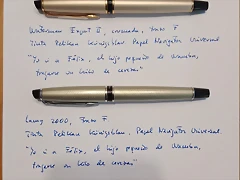 Waterman Expert II, cromada, trazo F
Tinta Pelikan Königsblau. Papel Navigator Universal
"Yo vi a Félix, el hijo pequeño de Wamba,
trajome un kilo de cerezas"
Lamy 2000, Trazo F
Tinta Pelikan Königsblau. Papel Navigator Universal.
"Yo vi a Félix, el hijo pequeño de Wamba,
trajome un kilo de cerezas"